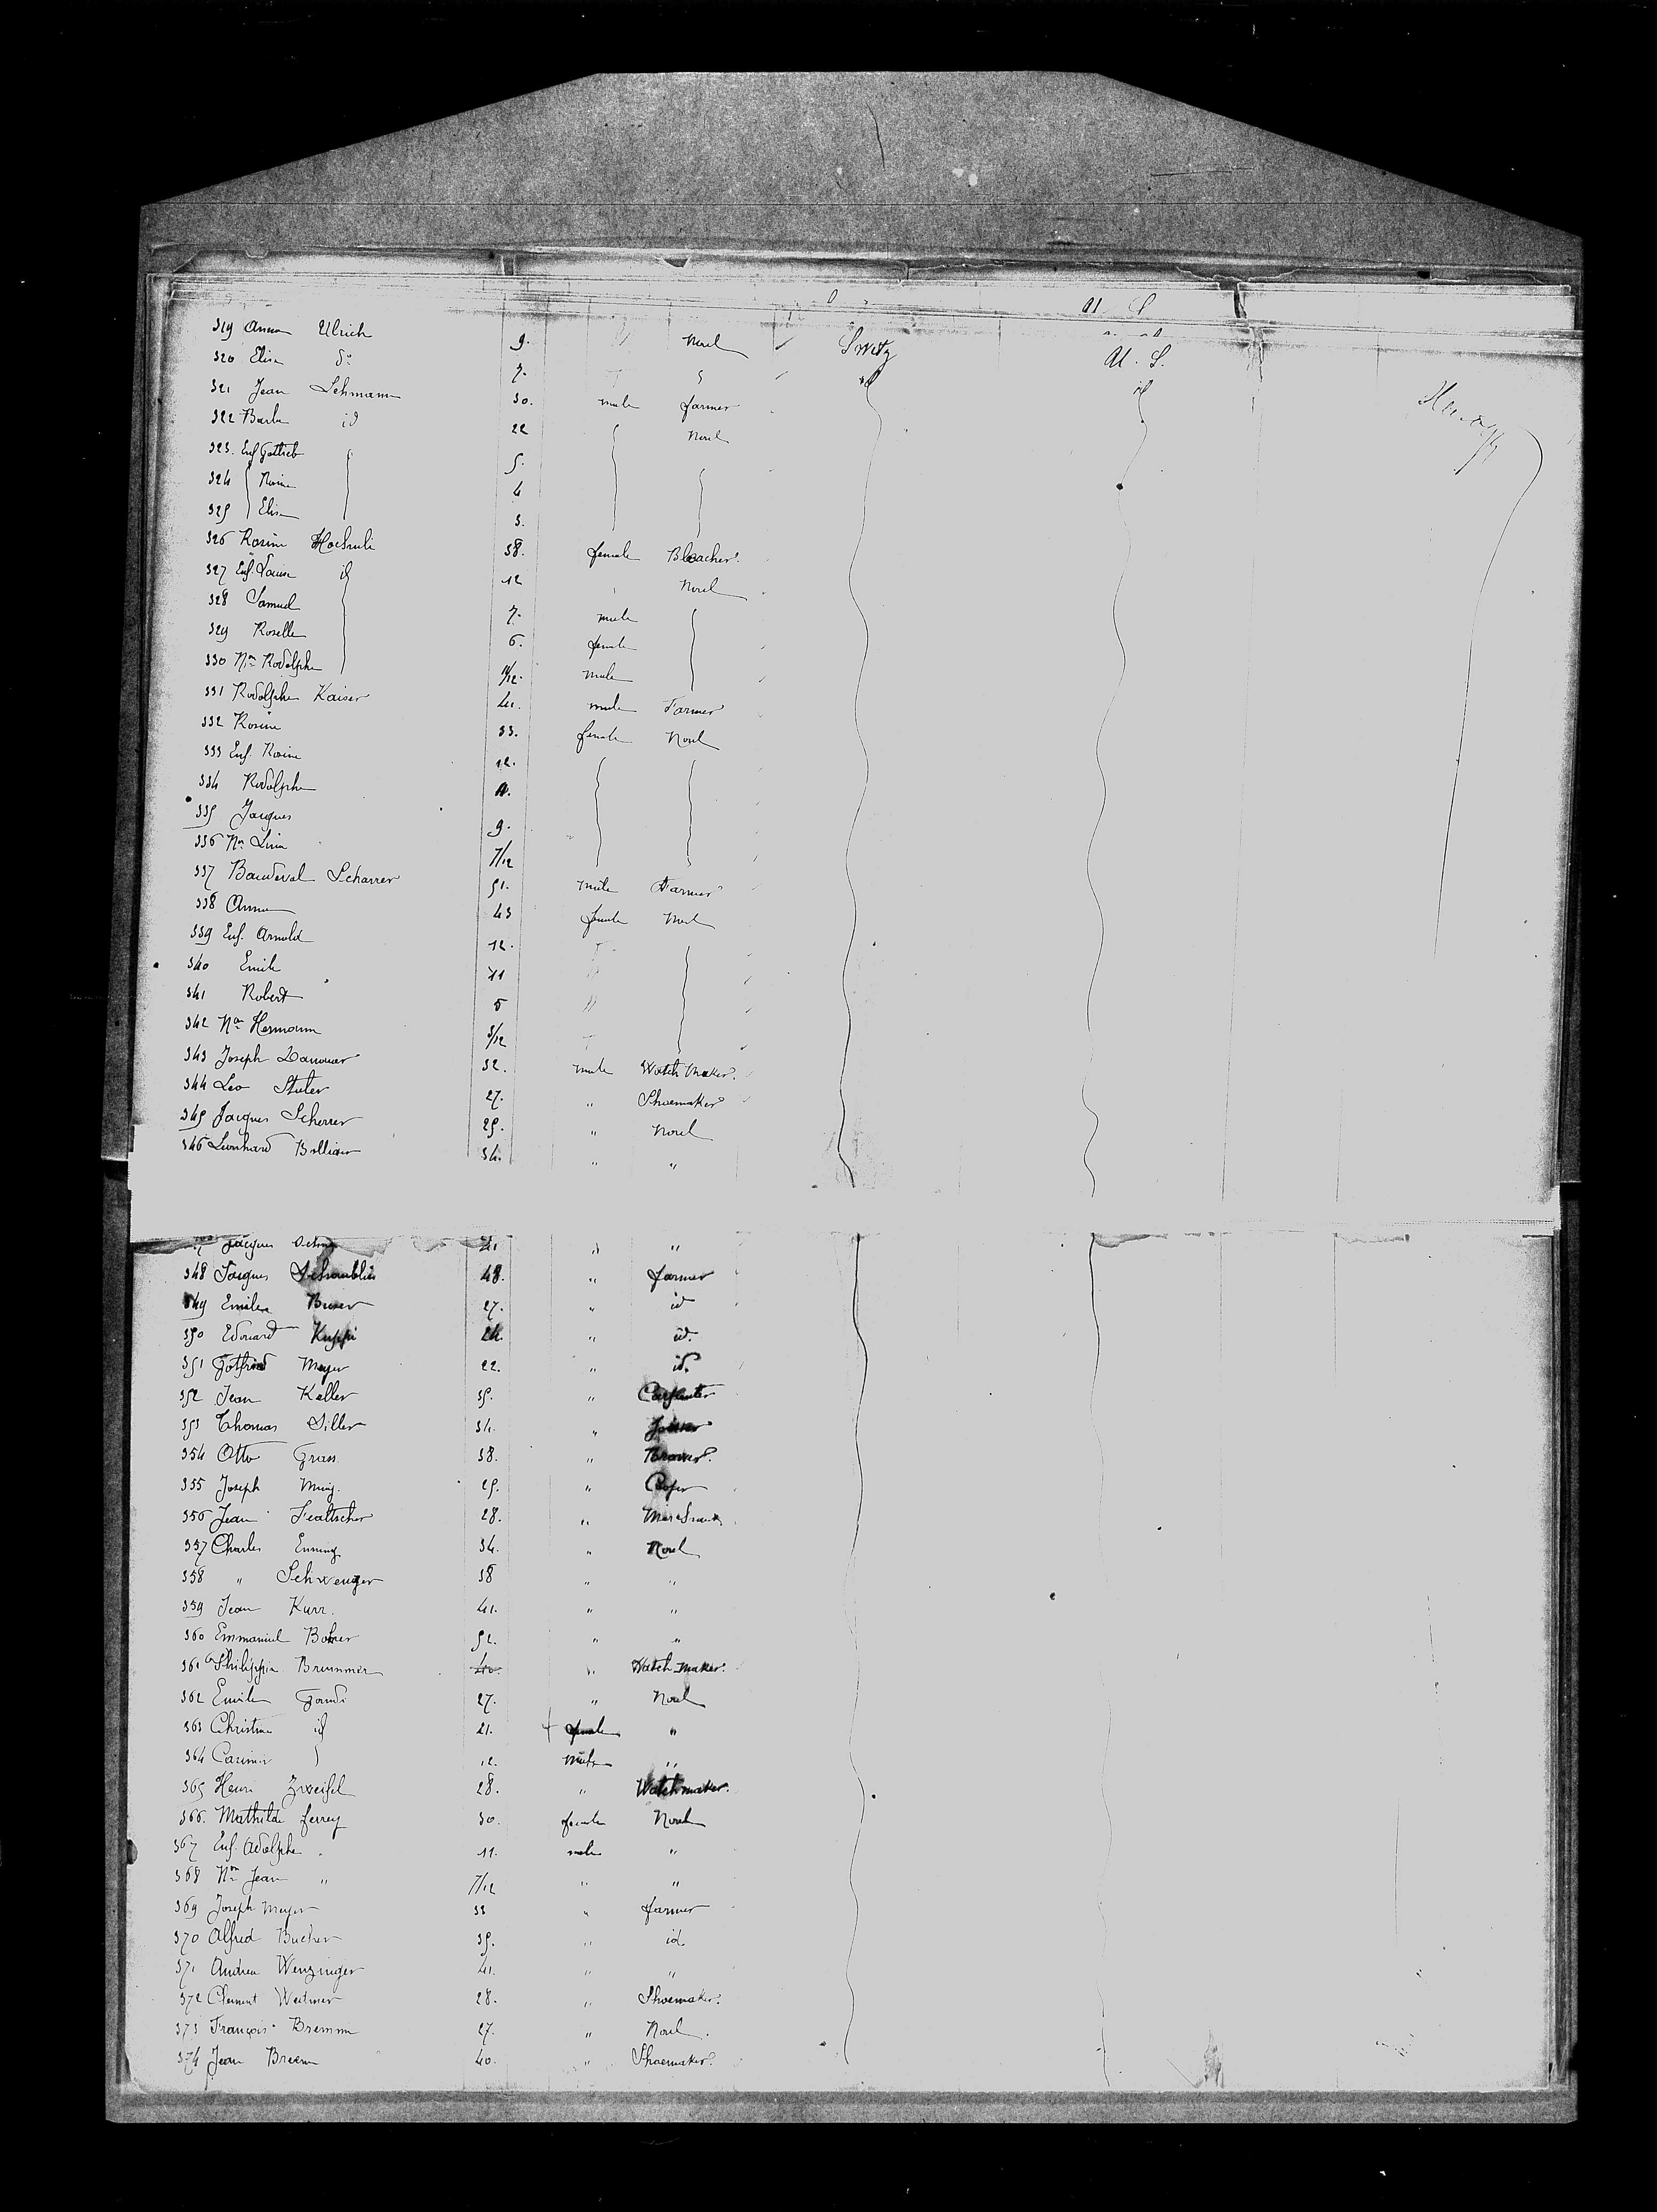 U S
319 Anna Ulrich 9. Noul Switz U. S.
320 Elisa do 7. id id
321 Jean Lehmann 30. male farmer
322 Barba id 22 Noul
323. Enf Gottlieb 5.
324 Rosina 4
325 Elisa 3.
326 Rosine 38. female Bleacher.
327 Enf. Louise id 12 Noul
328 Samuel 7. male
329 Roselle 6. female
330 Nn Rodolphe 11/12. male
331 Rodolphe Kaiser 41. male Farmer
332 Rosine 33. female Noul
333 Enf. Rosine 12.
334 Rodolphe
335 Jacques 9.
336 Nn Lina 7/12
337 Scharrer 51. male Farmer
338 Anna 43 female Noul
339 Enf. Arnold 12.
340 Emile 11
341 Robert 5
342 Nn Hermann 3/12
343 Joseph 32. male Watch Maker.
344 Leo Studer 27. " Shoemaker
345 Jacques Scherrer 25. " Noul
346 Leonhard 34. " "
Jacques 41 " "
348 Jacques 48. " farmer
349 Emile Buser 27. " id
350 Edouard 24. " id.
351 Gotfried Meyer 22. " id.
352 Jean Keller 35. " Carpenter
353 Thomas Siller 34. "
354 Otto Grass 38. " Brewer.
355 Joseph Ming. 25. " Cooper
356 Jean 28. "
357 Charles 34. " Noul
358 " Schwenger 38 " "
359 Jean Kurr. 41. " "
360 Emmanuel Bohrer 52. " "
361 Philippe Brunner 40. " Watch maker.
362 Emile 27. " Noul
363 Christine id 21. female "
364 Casimir 12. male "
365 Henri Zweifel 28. " Watchmaker.
366. Mathilde ferrey 30. female Noul
367 Enf. Adolphe 11. male "
368 Nn Jean " 7/12 " "
369 Joseph Meyer 33 " farmer
370 Alfred Bucher 35. " id.
371 Andrea Wenzinger 41. " "
372 Clement 28. " Shoemaker.
373 François 27. " Noul.
374 Jean 40. " Shoemaker.